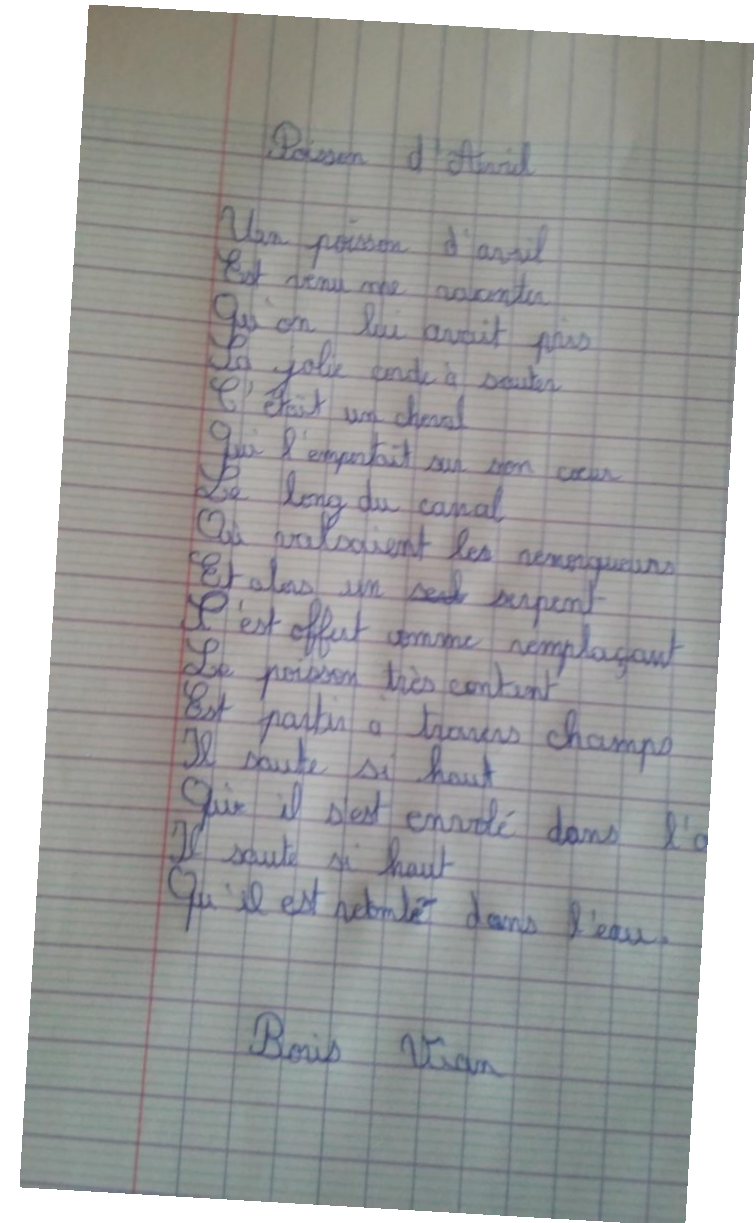 Poisson d'Avril
Un poisson d'avril
Est venu me raconter
Qu'on lui avait pris
Sa jolie corde à sauter
C'était un cheval
Qui l'emportait sur son cœur
Le long du canal
Où valsaient les remorqueurs
Et alors un serpent
S'est offert comme remplaçant
Le poisson très content
Est partir à travers champs
Il saute si haut
Que il s'est envolé dans l'a
Il saute si haut
Qu'il est retombé dans l'eau.
Boris Vian